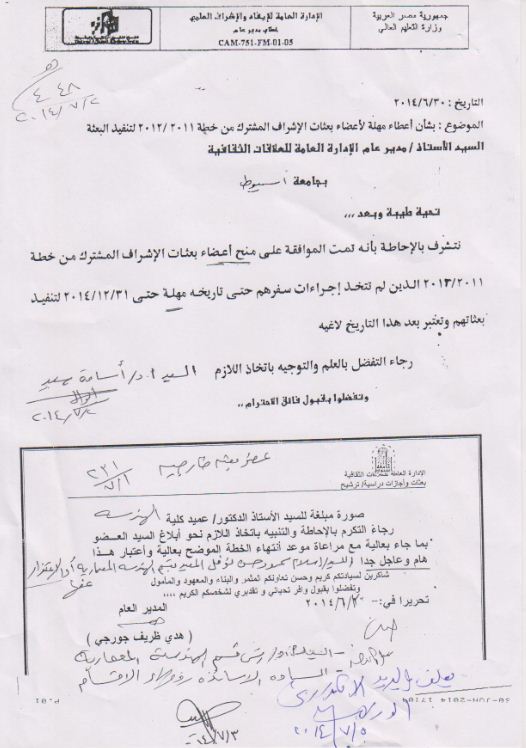 جمهورية مصر العربية
وزارة التعليم العالي
الإدارة العامة للإيفاد والإشراف العلمي
خطاب مدير عام
CAM-751-FM-01-05
٤٤٨
٢٠١٤/٧/٢
التاريخ : ٢٠١٤/٦/٣٠
الموضوع : بشأن أعطاء مهلة لأعضاء بعثات الإشراف المشترك من خطة ٢٠١١ /٢٠١٢ لتنفيذ البعثة
السيد الأستاذ / مدير عام الإدارة العامة للعلاقات الثقافية
بجامعة أسيوط
تحية طيبة وبعد ,,,
نتشرف بالإحاطة بأنه تمت الموافقة على منح أعضاء بعثات الإشراف المشترك من خطة
٢٠١٢/٢٠١١ الذين لم تتخذ إجراءات سفرهم حتى تاريخه مهلة حتى ٢٠١٤/١٢/٣١ لتنفيذ
بعثاتهم وتعتبر بعد هذا التاريخ لاغيه
رجاء التفضل بالعلم والتوجيه باتخاذ اللازم
السيد ا.د/ أسامة
وتفضلوا بقبول فائق الاحترام ,,
٢٠١٤/٧/٢
الإدارة العامة للعلاقات الثقافية
بعثات وأجازات دراسية/ ترشيح
عضو بعثه خارجيه
٢٣١
صورة مبلغة للسيد الأستاذ الدكتور/ عميد كلية الهندسه
رجاء التكرم بالإحاطة والتنبيه باتخاذ اللازم نحو أبلاغ السيد العضو
بما جاء بعالية مع مراعاة موعد أنتهاء الخطة الموضح بعالية وأعتبار هذا
هام وعاجل جدا
شاكرين لسيادتكم كريم وحسن تعاونكم المثمر والبناء والمعهود والمأمول
وتفضلوا بقبول وافر تحياتي و تقديري لشخصكم الكريم ,,,,
تحريرا في:-
المدير العام
( هدي ظريف جورجي )
قسم الهندسة المعمارية
الساده الاساتذه رؤساء الاقسام
P.01
30-JUN-2014 17:04
٢٠١٤/٧/٥